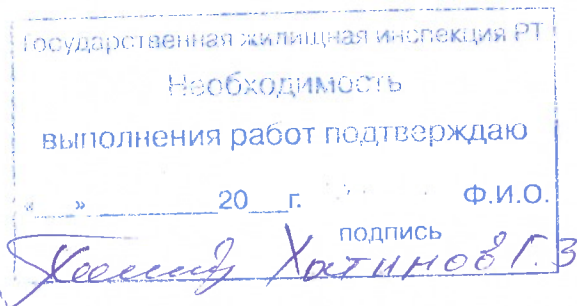 Государственная жилищная инспекция РТ
Необходимость
выполнения работ подтверждаю
«___»_________20___г. Ф.И.О.
подпись
Хатипов Г.З